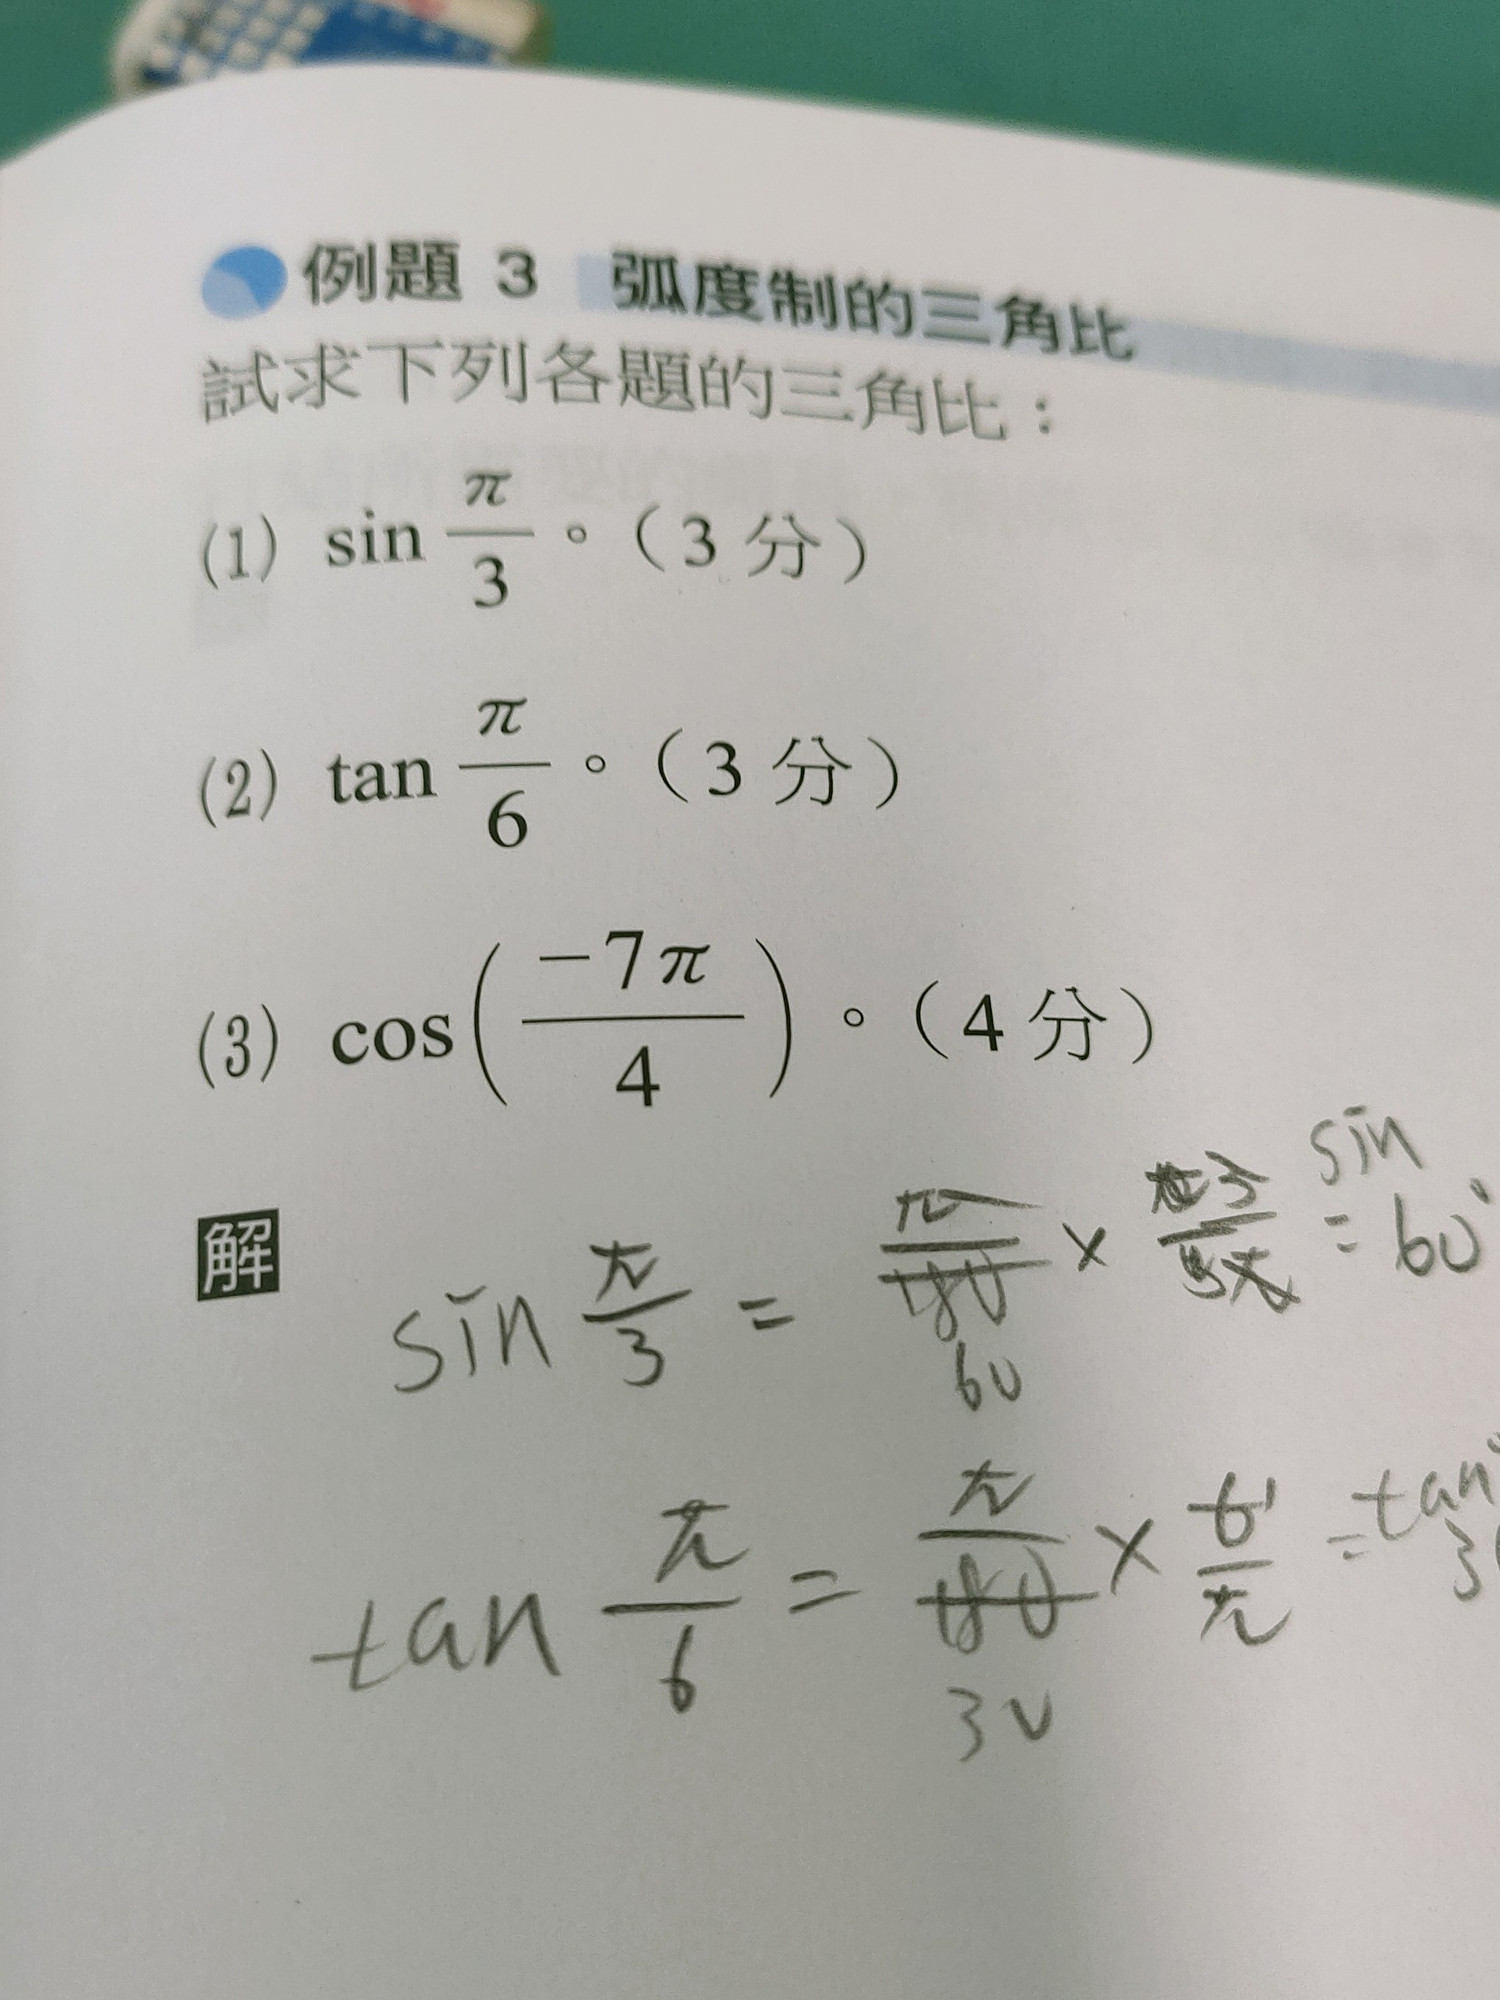 例題 3 弧度制的三角比
試求下列各題的三角比：
(1) sin π/3 。（3 分）
(2) tan π/6 。（3 分）
(3) cos(-7π/4) 。（4 分）
解
sin π/3 = π/180 × = sin 60°
60
tan π/6 = π/180 × 6/π = tan
30